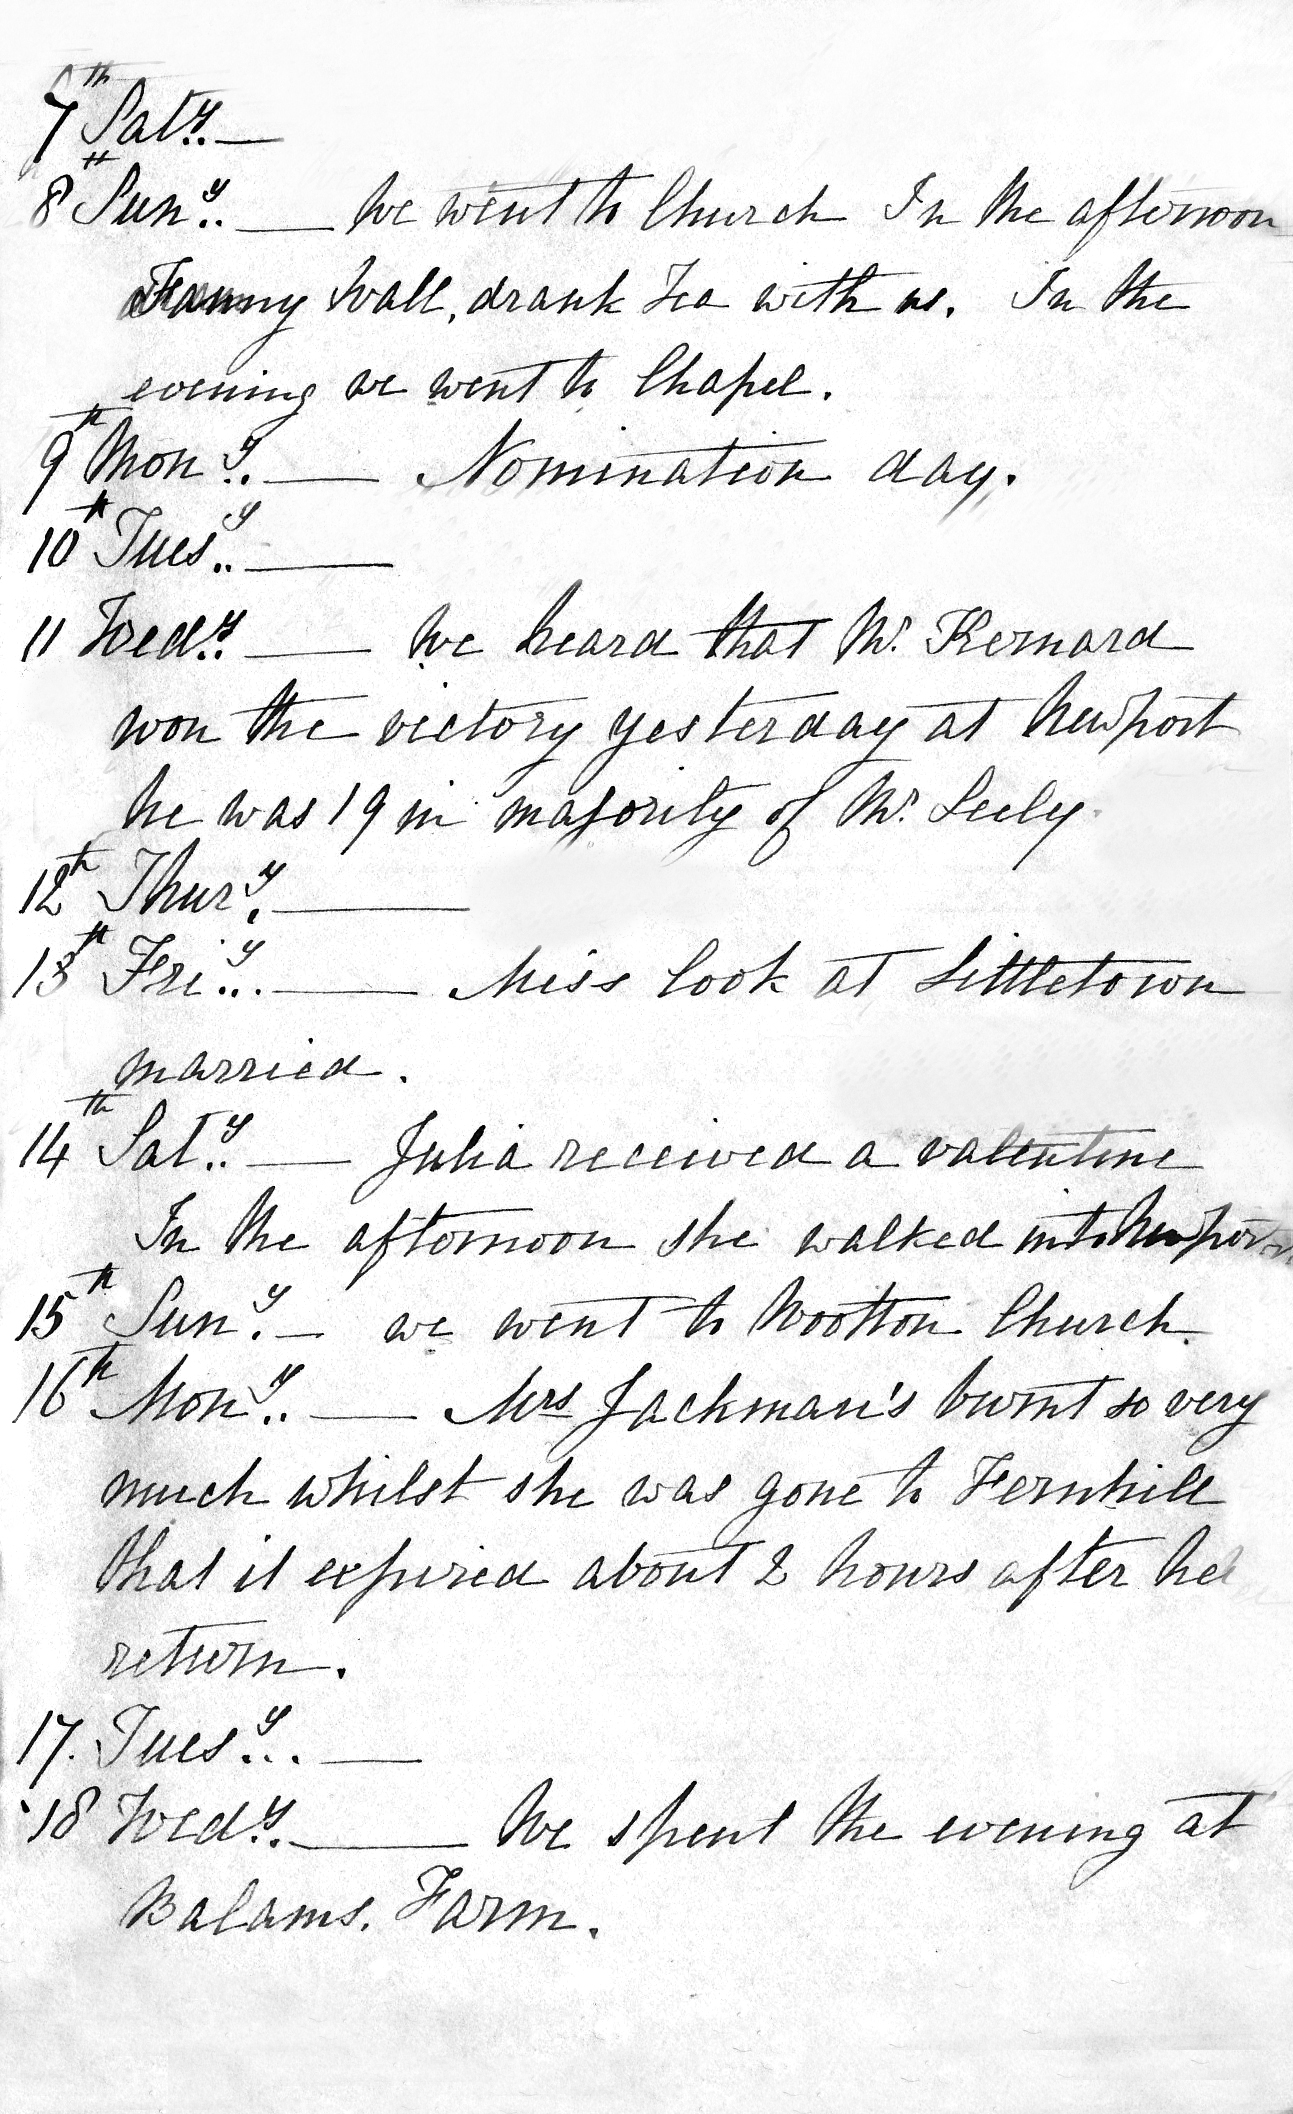 7th Saty. —
8th Suny. — We went to Church In the afternoon
Fanny Wall, drank Tea with us. In the
evening we went to Chapel.
9th Mony. — Nomination day.
10th Tuesy. —
11 Wedy. — We heard that Mr. Kernard
won the victory yesterday at Newport
he was 19 in majority of Mr. Seely.
12th Thury. —
13th Friy. — Miss Cook at Littletown
married.
14th Saty. — Julia received a valentine
In the afternoon she walked into Newport
15th Suny. — we went to Wootton Church.
16th Mony. — Mrs Jackman's burnt so very
much whilst she was gone to Fernhill
that it expired about 2 hours after her
return.
17. Tuesy. —
18 Wedy. — We spent the evening at
Balams. Farm.